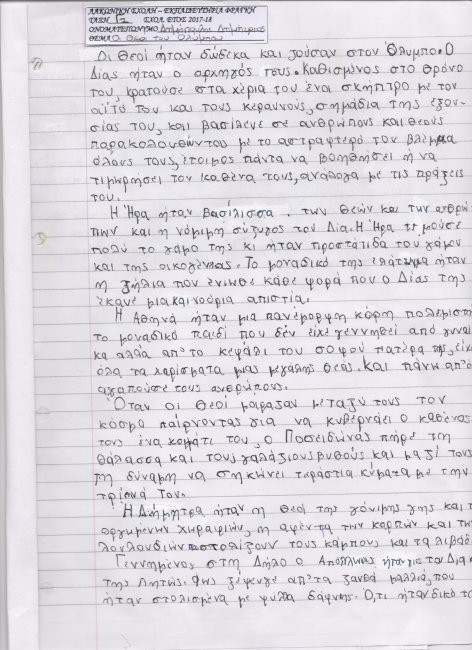 ΛΑΚΩΝΙΚΗ ΣΧΟΛΗ – ΕΚΠΑΙΔΕΥΤΗΡΙΑ ΦΡΑΓΚΗ
ΤΑΞΗ ΣΧΟΛ. ΕΤΟΣ 2017-18
ΟΝΟΜΑΤΕΠΩΝΥΜΟ Δημήτριος
ΘΕΜΑ Οι Θεοί του Ολύμπου
Οι θεοί ήταν δώδεκα και ζούσαν στον Όλυμπο. Ο
Δίας ήταν ο αρχηγός τους. Καθισμένος στο θρόνο
του, κρατούσε στα χέρια του ένα σκήπτρο με τον
αϊτό του και τους κεραυνούς, σημάδια της εξου-
σίας του, και βασίλευε σε ανθρώπους και θεούς
παρακολουθώντου με το αστραφτερό του βλέμμα
όλους τους, έτοιμος πάντα να βοηθήσει ή να
τιμωρήσει τον καθένα τους, ανάλογα με τις πράξεις
του.
Η Ήρα ήταν βασίλισσα. των θεών και των ανθρώ
πων και η νόμιμη σύζυγος του Δία. Η Ήρα τιμούσε
πολύ το γάμο της κι ήταν προστάτιδα του γάμου
και της οικογένειας. Το μοναδικό της ελάττωμα ήταν
η ζήλια που ένιωθε κάθε φορά που ο Δίας της
έκανε μια καινούρια απιστία.
Η Αθηνά ήταν μια πανέμορφη κόρη πολεμιστη
το μοναδικό παιδί που δεν είχε γεννηθεί από γυναί
κα αλλά απ'το κεφάλι του σοφού πατέρα της, είχε
όλα τα χαρίσματα μιας μεγάλης θεάς. και πάνω απ'ό
αγαπούσε τους ανθρώπους.
Όταν οι θεοί μοίραζαν μεταξύ τους τον
κόσμο παίρνοντας για να κυβερνάει ο καθένας
τους ένα κομμάτι του, ο Ποσειδώνας πήρε τη
θάλασσα και τους γαλάζιους βυθούς και μαζί τους
τη δύναμη να σηκώνει τεράστια κύματα με την
τρίαινά του.
Η Δήμητρα ήταν η θεά της γόνιμης γης και τ
οργωμένων χωραφιών, η αφέντρα των καρπών και των
λουλουδιών στολίζουν τους κάμπους και τα λιβάδι
Γεννημένος στη Δήλο ο Απόλλωνας ήταν γιος του Δία κ
της Λητώς. Φως ξέφευγε απ'τα ξανθά μαλλιά, που
ήταν στολισμένα με φύλλα δάφνης. Ό,τι ήταν δικό το